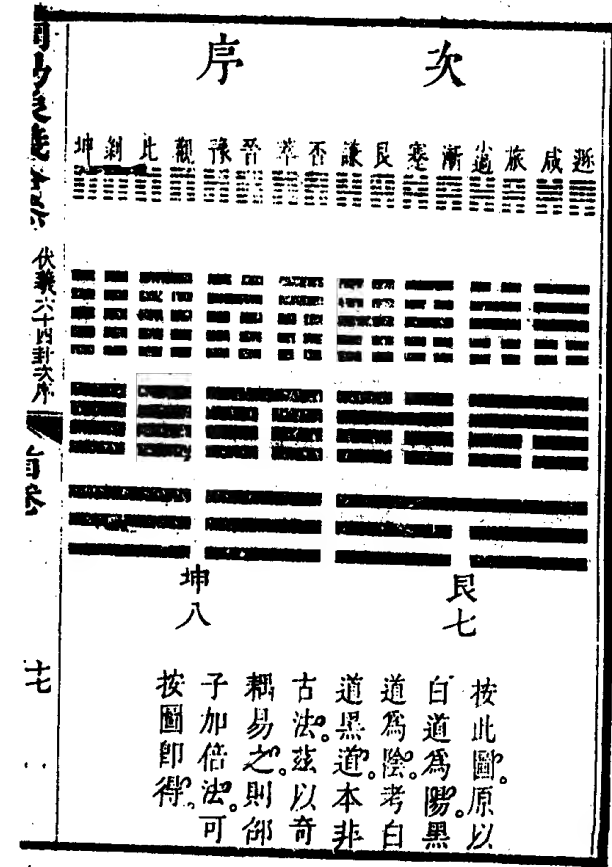 次序
遯 咸 旅 小過 漸 蹇 艮 謙 否 萃 晉 豫 觀 比 剝 坤
艮七
坤八
按此圖。原以
白道爲陽。黑
道爲陰。考白
道黑道。本非
古法。茲以奇
耦易之。則邵
子加倍法。可
按圖卽得。
周易
伏羲六十四卦次序
首卷
十七